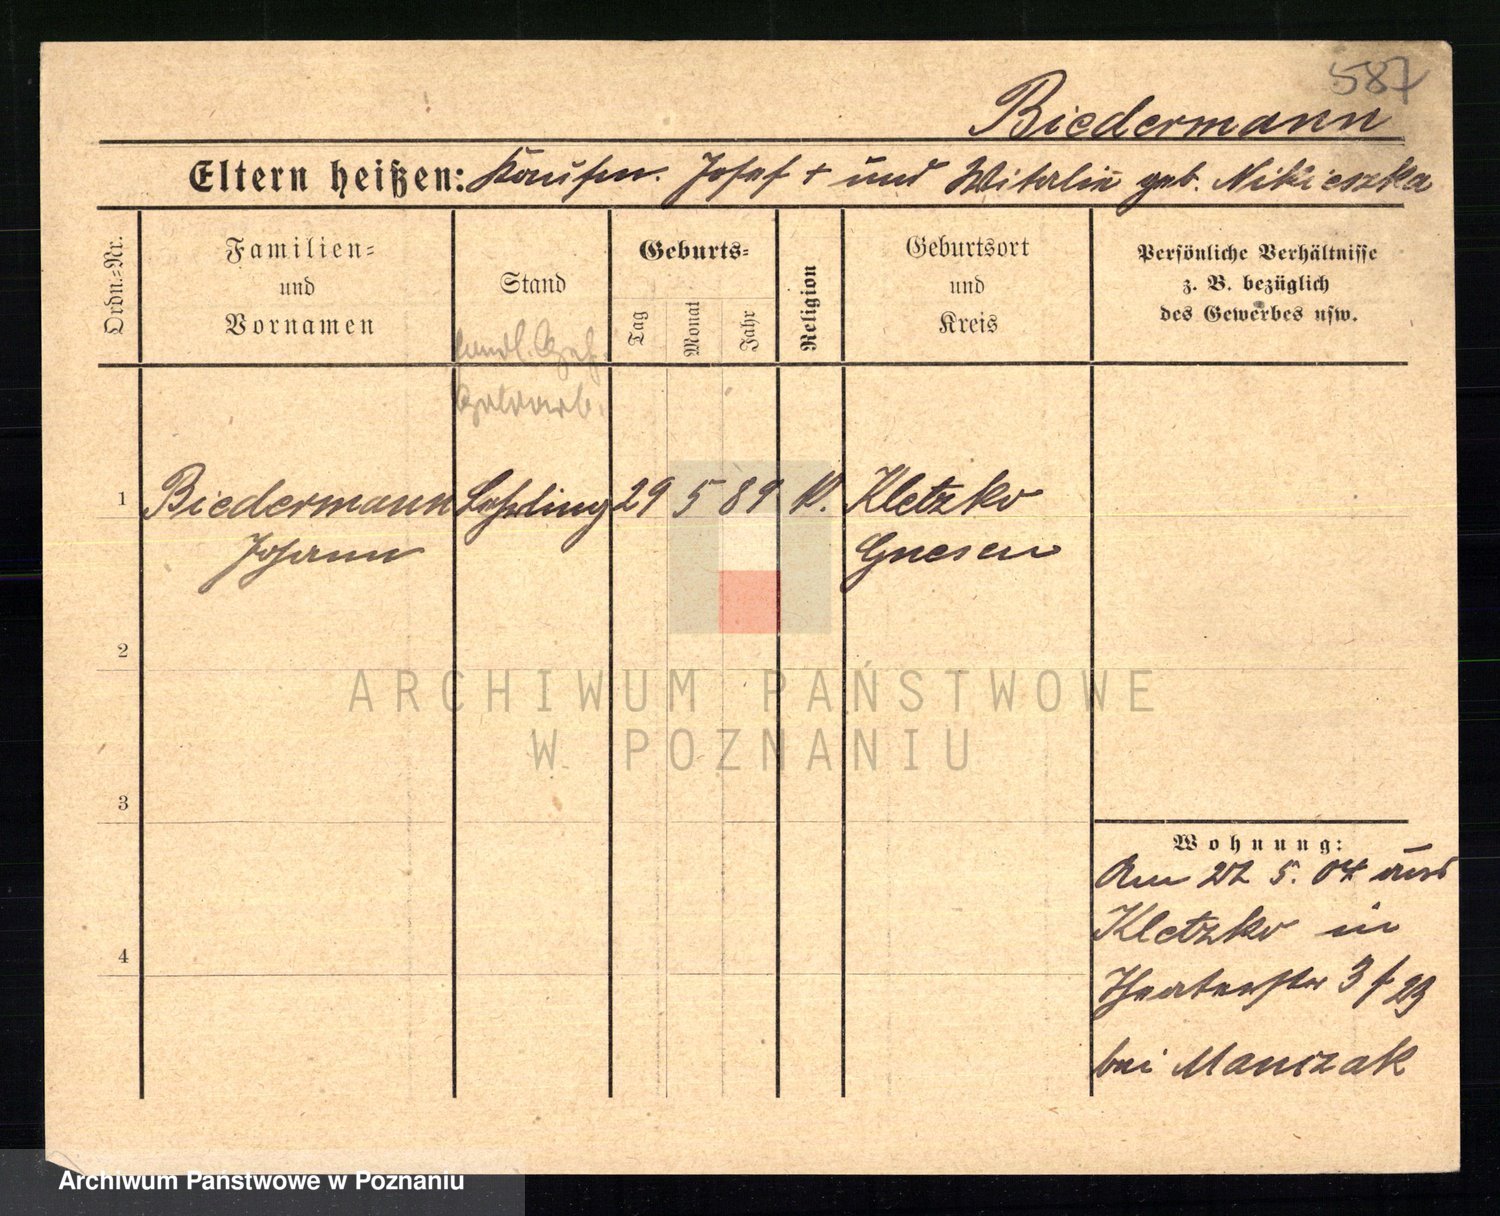 587
Biedermann
Eltern heißen: Kaufm. Josef + und Witalie geb.
Ordn.=Nr.
Familien=
und
Vornamen
Stand
Geburts=
Tag
Monat
Jahr
Religion
Geburtsort
und
Kreis
Persönliche Verhältnisse
z. B. bezüglich
des Gewerbes usw.
1 Biedermann Lehrling 29 5 89 K. Kletzko
Johann Gnesen
2
3
4
ARCHIWUM PAŃSTWOWE
W POZNANIU
Wohnung:
Am 5. 04 aus
Kletzko in
Theaterstr 3
bei Manczak
Archiwum Państwowe w Poznaniu